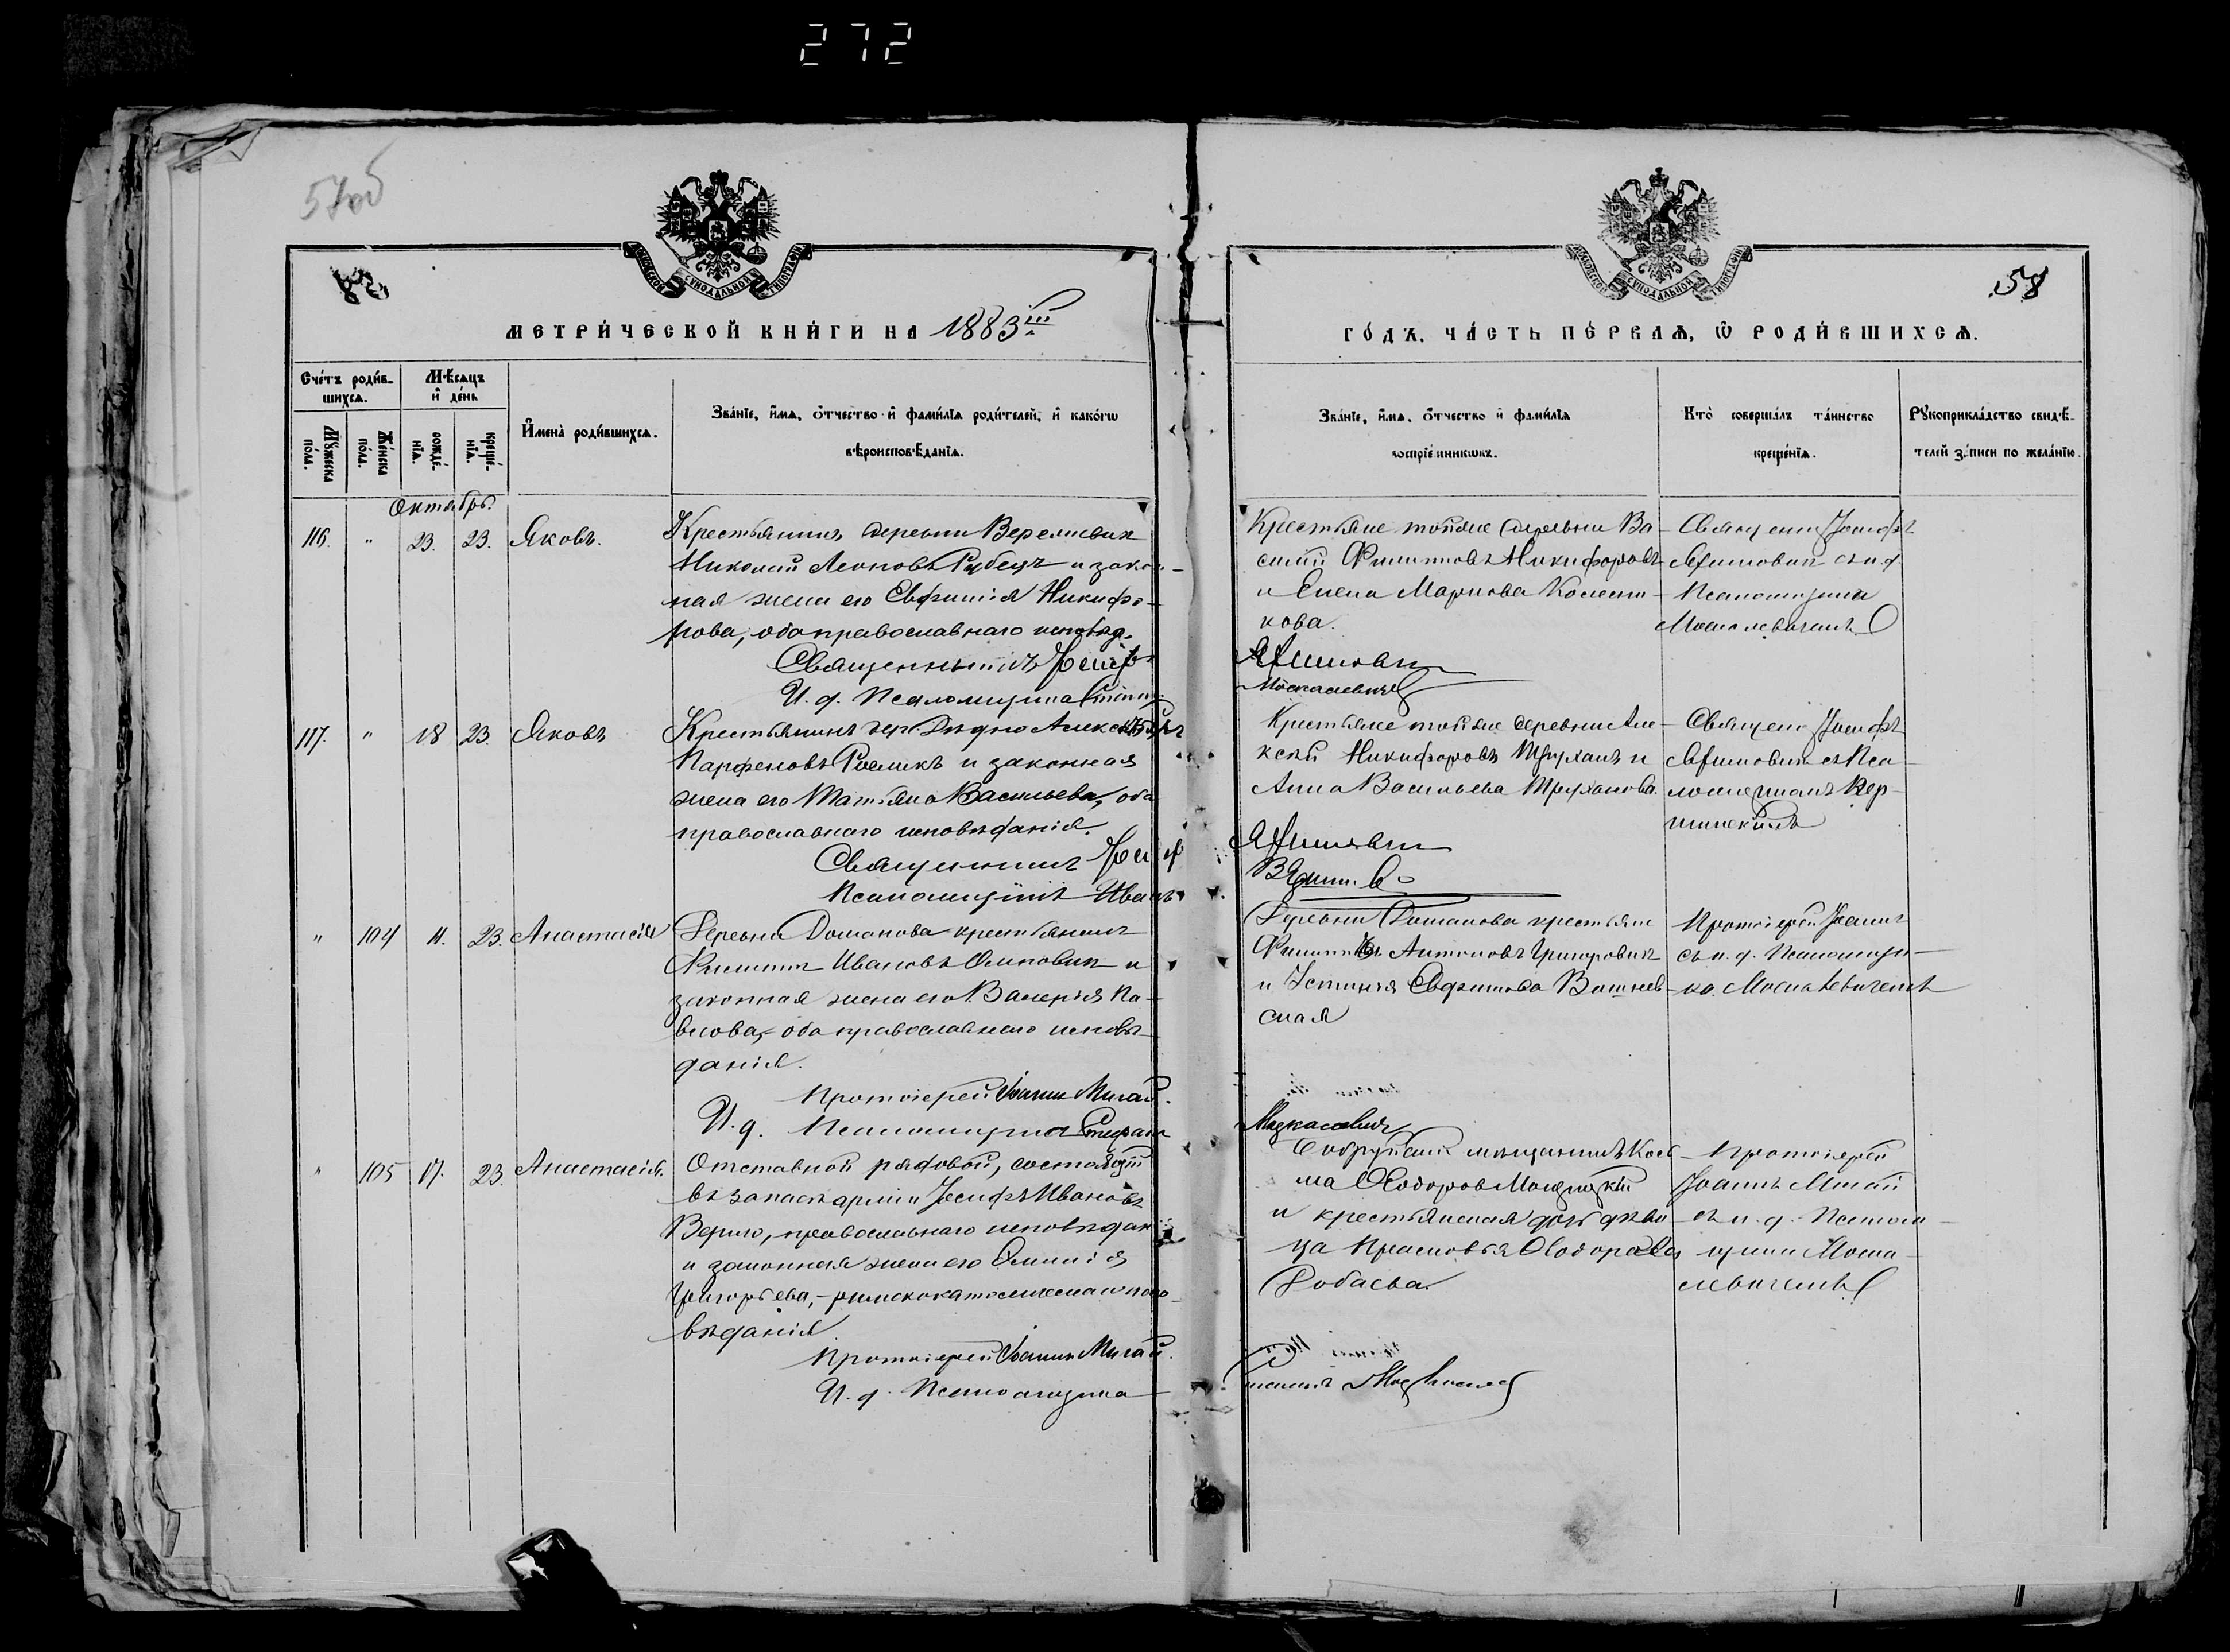 272
57об
58
МОСКОВСКОЙ СѴНОДАЛЬНОЙ ТИПОГРАФІИ
МОСКОВСКОЙ СѴНОДАЛЬНОЙ ТИПОГРАФІИ
МЕТРИ́ЧЕСКОЙ КНИ́ГИ НА 1883 III
ГО́ДЪ. ЧА́СТЬ ПЕ́РВАѦ, Ѽ РОДИ́ВШИХСѦ.
Сче́тъ роди́в-
шихсѧ.
Мꙋ́жеска по́ла.
Же́нска по́ла.
Мѣ́сѧцъ и де́нь
рожде́-нїѧ.
креще́-нїѧ.
Имена̀ роди́вшихсѧ.
Зва́нїе, и҆́мѧ, ѻ҆́тчество и҆ фами́лїѧ роди́телей, и҆ како́гѡ
вѣроисповѣ́данїѧ.
Зва́нїе, и҆́мѧ, ѻ҆́тчество и҆ фами́лїѧ
воспрїе́мникѡвъ.
Кто̀ соверша́лъ та́инство
креще́нїѧ.
Рꙋкоприкла́дство свидѣ́-
телей за́писи по жела́нїю.
Октябрь.
116. " 23. 23. Яковъ.
Крестьянинъ деревни Веремковик
Николай Леоновъ Рубецъ и закон-
ная жена его Евфимія Никифо-
рова, оба православнаго исповѣд.
Священникъ Іосифъ
И. д. Псаломщика Стефанъ
Крестьяне тойже деревни Ва-
силій Филипповъ Никифоровъ
и Елена Маркова
кова.
Священни Іосифъ
съ и. д.
Псаломщика
Москалевичемъ
Москалевичъ
117. " 18 23. Яковъ
Крестьянинъ дер. Дидно Александръ
Парфеновъ и законная
жена его Татьяна Васильева, оба
православнаго исповѣданія.
Священникъ Іосиф
Псаломщикъ Иванъ
Крестьяне тойже деревни Але-
ксѣй Никифоровъ Труханъ и
Анна Васильева Труханова.
Священ. Іосифъ
съ Пса-
ломщикомъ Вер-
" 104 11. 23. Анастасія
Деревни Доманова крестьянинъ
Филиппъ Ивановъ Осиповичъ и
законная жена его Валерія Па-
влова, оба православнаго исповѣ-
данія.
Протоіерей Іоаннъ Мигай.
И. д. Псаломщика Стефанъ
Деревни Доманова крестьяне
Филиппъ Антоновъ Григоровичъ
и Устинія Евфимова Вишнев-
ская
Протоіерей Іоаннъ
съ и. д. Псаломщи-
ка Москалевичемъ
Москалевичъ
" 105 17. 23. Анастасія.
Отставной рядовой, состоящій
въ запасѣ арміи Іосифъ Ивановъ
Верило, православнаго исповѣдан
и законная жена его
Григорьева, - римскокатолическаго испо-
вѣданія.
Протоіерей Іоаннъ Мигай.
И. д. Псаломщика
Бобруйскій мѣщанинъ Кось-
ма Ѳеодоровъ
и крестьянская дочь дѣви-
ца Прасковья Ѳеодорова
Протоіерей
Іоаннъ Мигай
съ и. д. Псалом-
щика Моска-
левичемъ